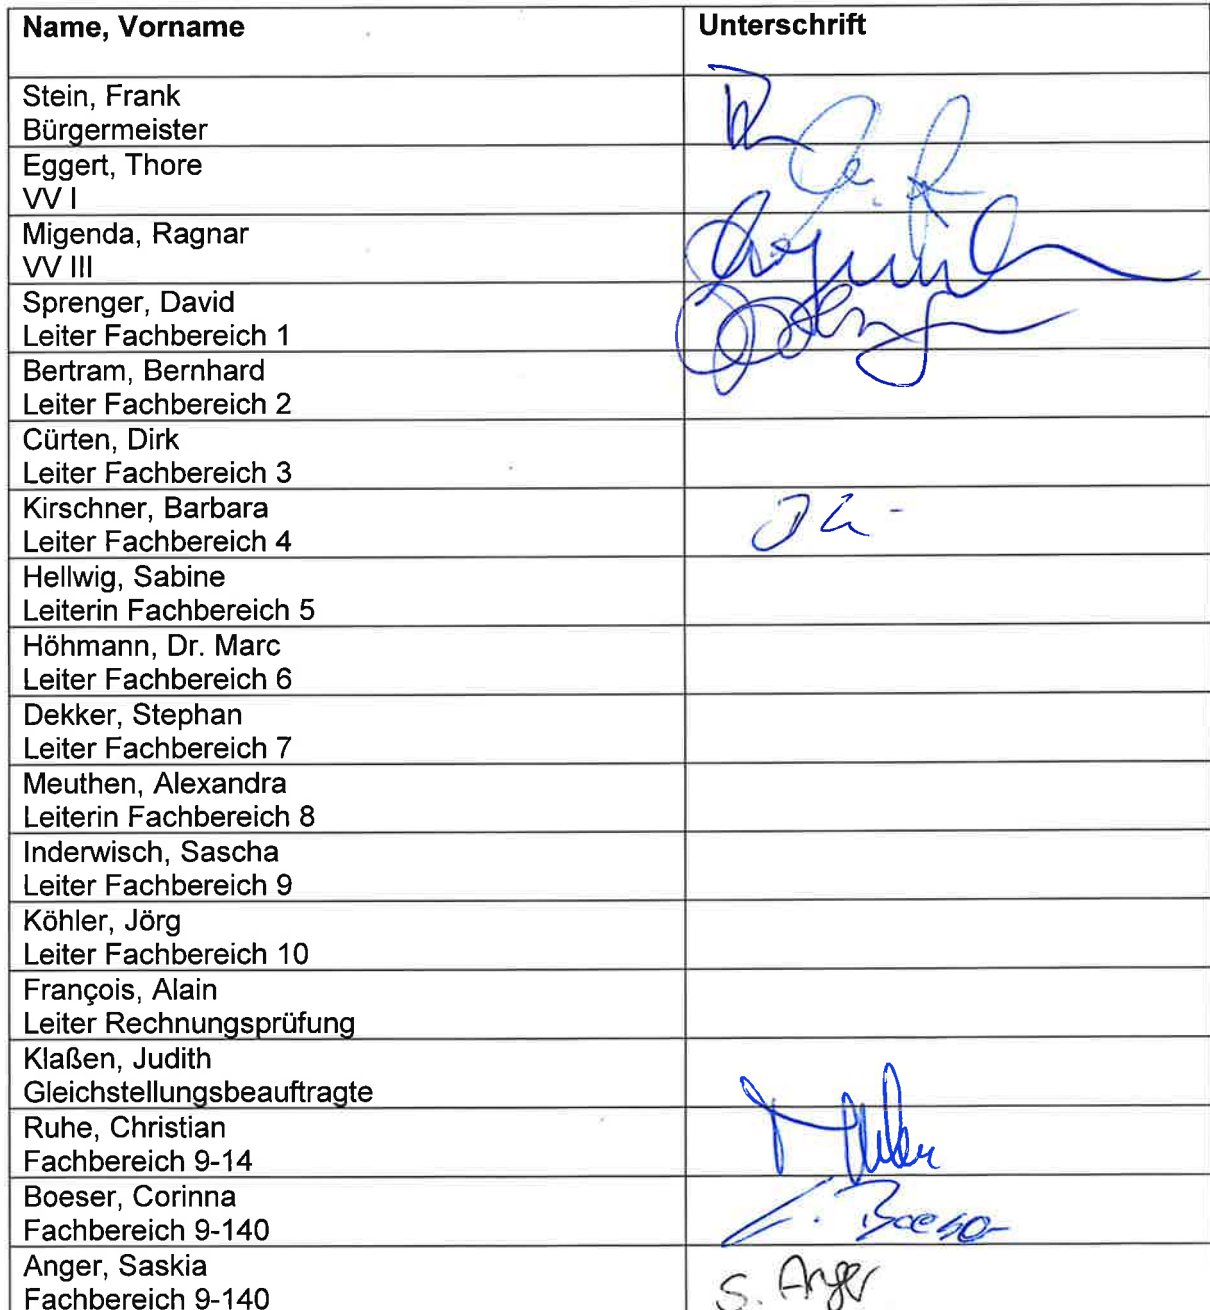 Name, Vorname Unterschrift
Stein, Frank
Bürgermeister
Eggert, Thore
VV I
Migenda, Ragnar
VV III
Sprenger, David
Leiter Fachbereich 1
Bertram, Bernhard
Leiter Fachbereich 2
Cürten, Dirk
Leiter Fachbereich 3
Kirschner, Barbara
Leiter Fachbereich 4
Hellwig, Sabine
Leiterin Fachbereich 5
Höhmann, Dr. Marc
Leiter Fachbereich 6
Dekker, Stephan
Leiter Fachbereich 7
Meuthen, Alexandra
Leiterin Fachbereich 8
Inderwisch, Sascha
Leiter Fachbereich 9
Köhler, Jörg
Leiter Fachbereich 10
François, Alain
Leiter Rechnungsprüfung
Klaßen, Judith
Gleichstellungsbeauftragte
Ruhe, Christian
Fachbereich 9-14
Boeser, Corinna
Fachbereich 9-140
Anger, Saskia S. Anger
Fachbereich 9-140